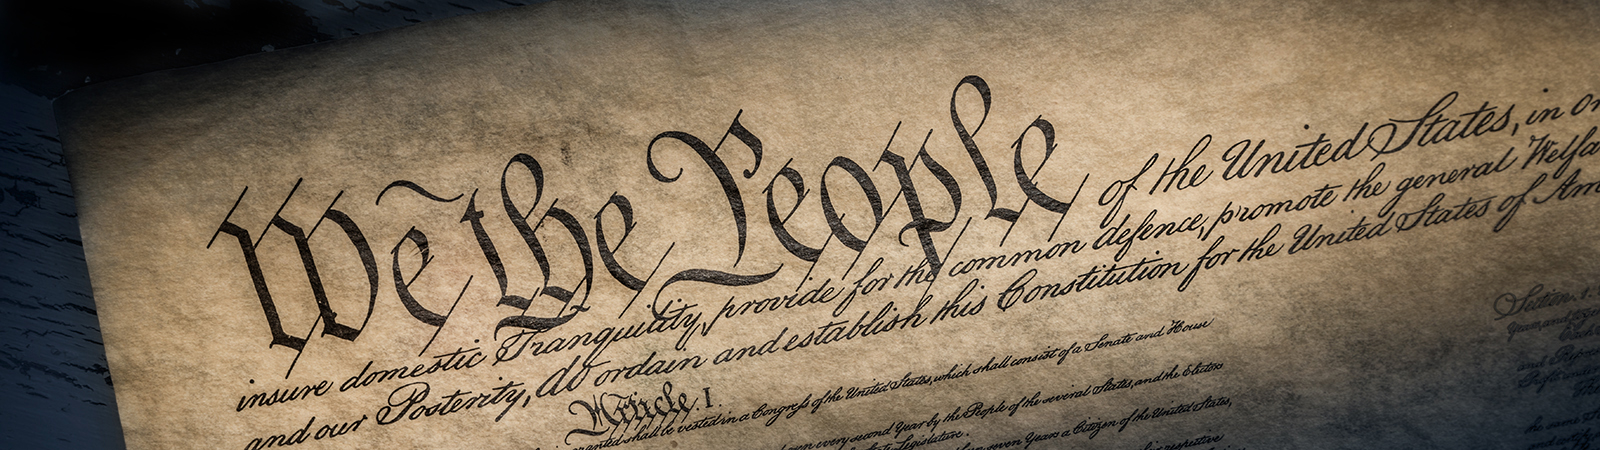 We the People of the United States, in
insure domestic Tranquility, provide for the common defence, promote the general
and our Posterity, do ordain and establish this Constitution for the United States of
Article. I.
shall be vested in a Congress of the United States, which shall consist of a Senate and House
every second Year by the People of the several States, and the Electors
State Legislature.
seven Years a Citizen of the United States,
respective
Section. 1.